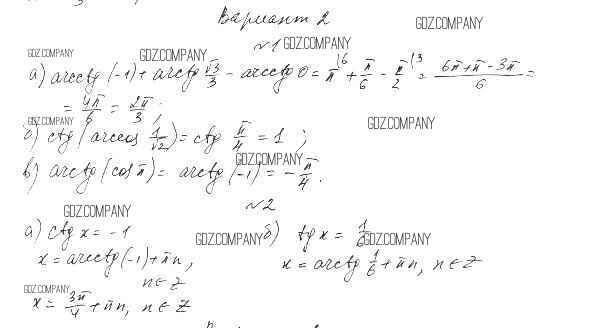 Вариант 2
GDZ.COMPANY
№1 GDZ.COMPANY
GDZ.COMPANY GDZ.COMPANY
а) arcctg (-1) + arctg √3/3 - arcctg 0 = π|6 + π/6 - π/2|3 = (6π+π-3π)/6 =
= 4π/6 = 2π/3 ;
GDZ.COMPANY GDZ.COMPANY
б) ctg (arccos 1/√2) = ctg π/4 = 1 ;
GDZ.COMPANY
в) arctg (cos π) = arctg (-1) = - π/4 .
№2
GDZ.COMPANY
а) ctg x = -1
GDZ.COMPANY
б) tg x = 1/6
GDZ.COMPANY
x = arcctg (-1) + πn ,
x = arctg 1/6 + πn, n ∈ Z
n ∈ Z
GDZ.COMPANY
x = 3π/4 + πn, n ∈ Z